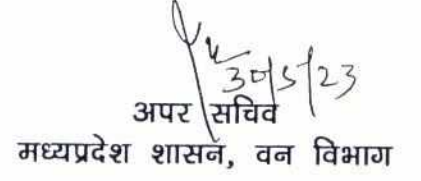 30/5/23
अपर सचिव
मध्यप्रदेश शासन, वन विभाग